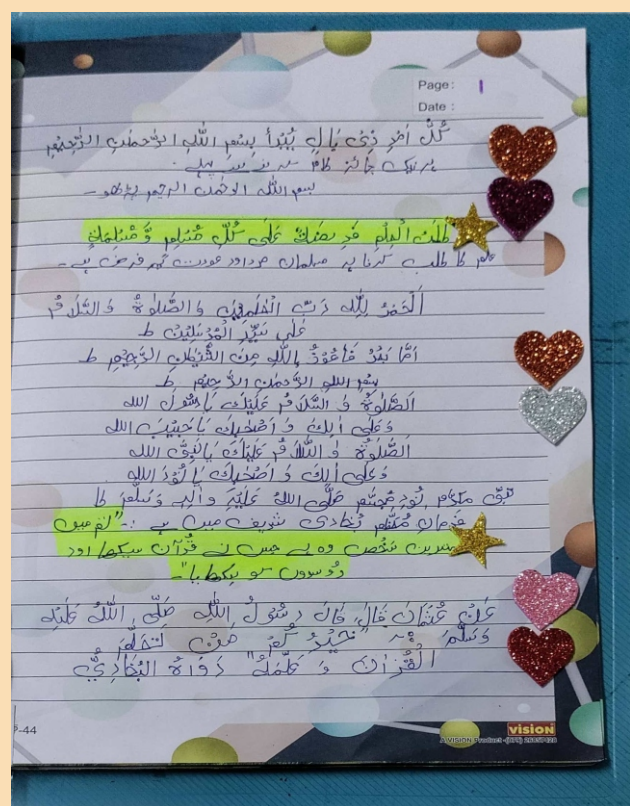 Page: 1
Date:
كُلُّ اَمْرٍ ذِىْ بَالٍ يُبْدَأُ بِسْمِ اللّٰهِ الرَّحْمٰنِ الرَّحِيْمِ
ہر نیک جائز کام کرنے سے پہلے۔
بسم اللّٰه الرحمٰن الرحيم پڑھو۔
طَلَبُ الْعِلْمِ فَرِيْضَةٌ عَلٰى كُلِّ مُسْلِمٍ وَّ مُسْلِمَةٍ
علم کا طلب کرنا ہر مسلمان مرد اور عورت پر فرض ہے۔
اَلْحَمْدُ لِلّٰهِ رَبِّ الْعٰلَمِيْنَ وَالصَّلٰوةُ وَالسَّلَامُ
عَلٰى سَيِّدِ الْمُرْسَلِيْنَ ط
اَمَّا بَعْدُ فَاَعُوْذُ بِاللّٰهِ مِنَ الشَّيْطٰنِ الرَّجِيْمِ ط
بِسْمِ اللّٰهِ الرَّحْمٰنِ الرَّحِيْمِ ط
اَلصَّلٰوةُ وَ السَّلَامُ عَلَيْكَ يَا رَسُوْلَ اللّٰه
وَعَلٰى اٰلِكَ وَ اَصْحٰبِكَ يَا حَبِيْبَ اللّٰه
اَلصَّلٰوةُ وَ السَّلَامُ عَلَيْكَ يَا نَبِىَّ اللّٰه
وَعَلٰى اٰلِكَ وَ اَصْحٰبِكَ يَا نُوْرَ اللّٰه
نبیِّ مکرّم نُورِ مُجسَّم صَلَّى اللّٰهُ عَلَيْهِ وَاٰلِهٖ وَسَلَّمَ کا
فرمانِ مُعظّم بُخاری شریف میں ہے :- "تم میں
بہترین شخص وہ ہے جس نے قُرآن سیکھا اور
دُوسروں کو سکھایا"۔
عَنْ عُثْمَانَ قَالَ، قَالَ رَسُوْلُ اللّٰهِ صَلَّى اللّٰهُ عَلَيْهِ
وَسَلَّمَ :- "خَيْرُ كُمْ مَنْ تَعَلَّمَ
الْقُرْاٰنَ وَ عَلَّمَهُ" رَوَاهُ الْبُخَارِىُّ
-44
vision
A VISION Product